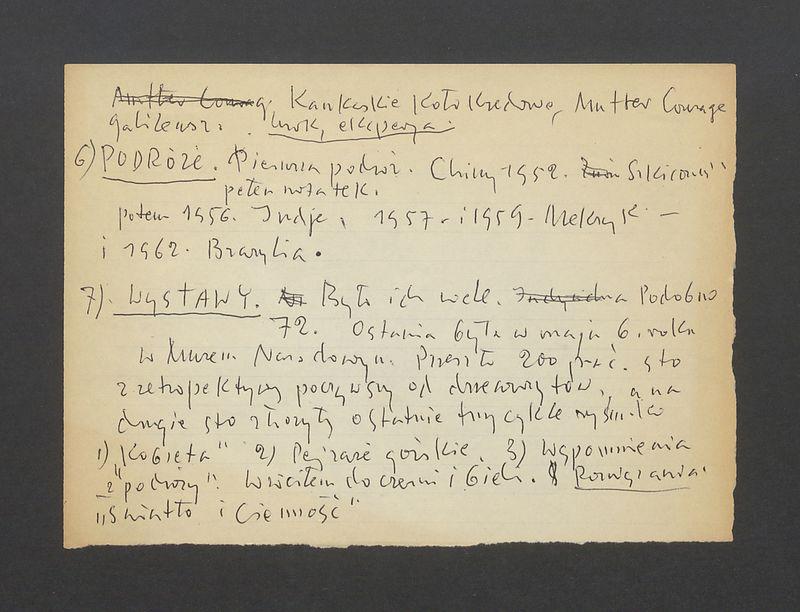 Mutter Courag. Kaukaskie Koło Kredowe, Mutter Courage
galileusz.
6) PODRÓŻE. Pierwsza podróż. Chiny 1952. Szkicownik
pełen notatek.
potem 1956. Indje, 1957. i 1959. Meksyk —
i 1962. Brazylia.
7) WYSTAWY. Było ich wiele. Podobno
72. Ostatnia była w maju b. roku
w Muzeum Narodowym. Przeszło 200 prac. sto
z retrospektywy począwszy od drzeworytów, a na
drugie sto złożyły ostatnie trzy cykle rysunków
1) "Kobieta" 2) Pejzaże górskie. 3) Wspomnienia
z "podróży". Wróciłem do czerni i bieli. Rozwiązania.
"Światło i Ciemność"